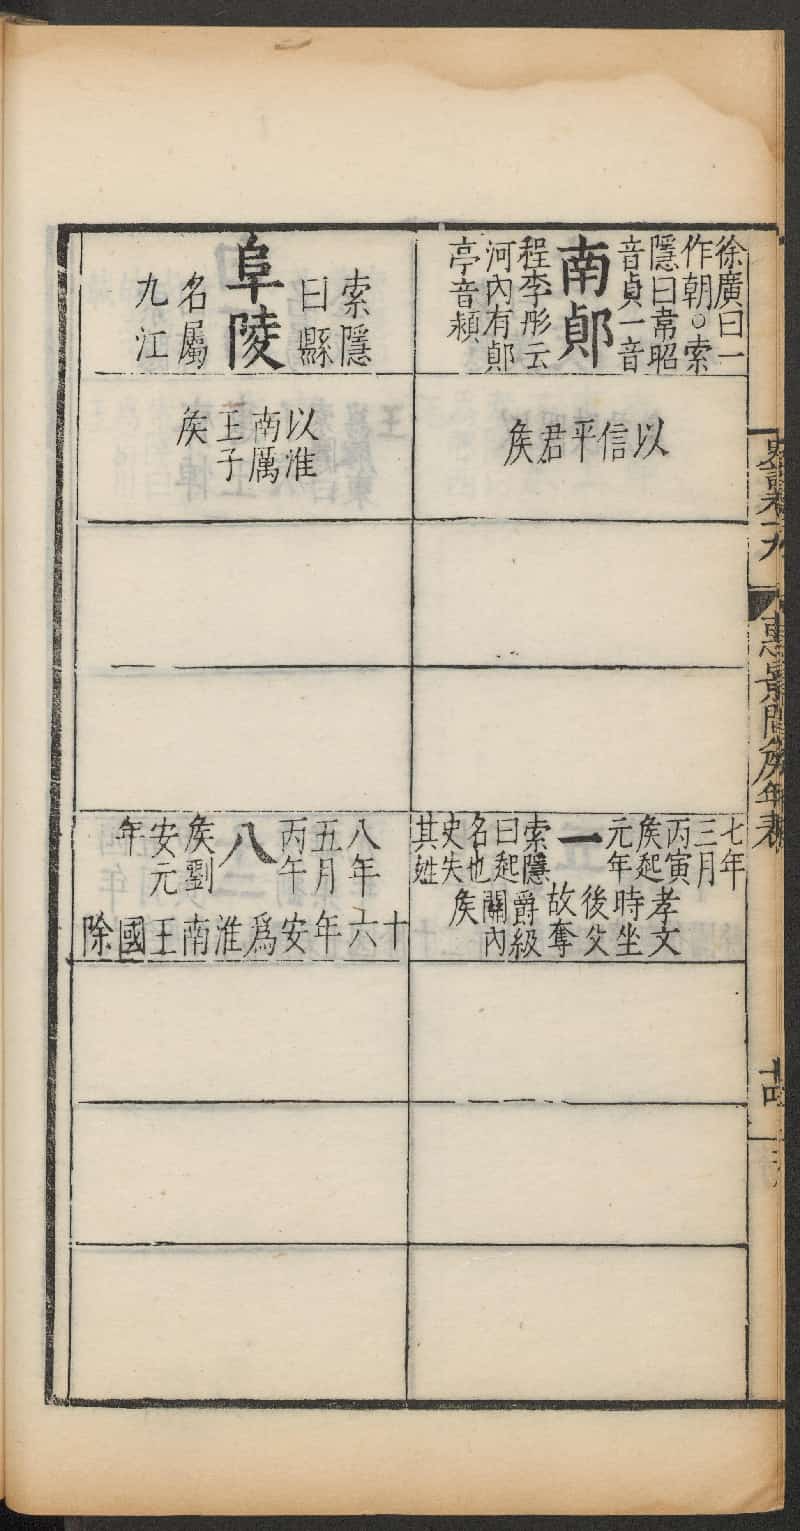 徐廣曰一
作朝○索
隱曰韋昭
音貞一音
南鄖
程李彤云
河內有鄖
亭音穎
以信平君矦
七年
三月
丙寅
矦起
元年
一
索隱
曰起
名也
史失
其姓
孝文
時坐
後父
故奪
爵級
關內
矦
索隱
曰縣
阜陵
名屬
九江
以淮
南厲
王子
矦
八年
五月
丙午
八
矦劉
安元
年
十六年安爲淮南王國除
史記卷十九
惠景間矦年表